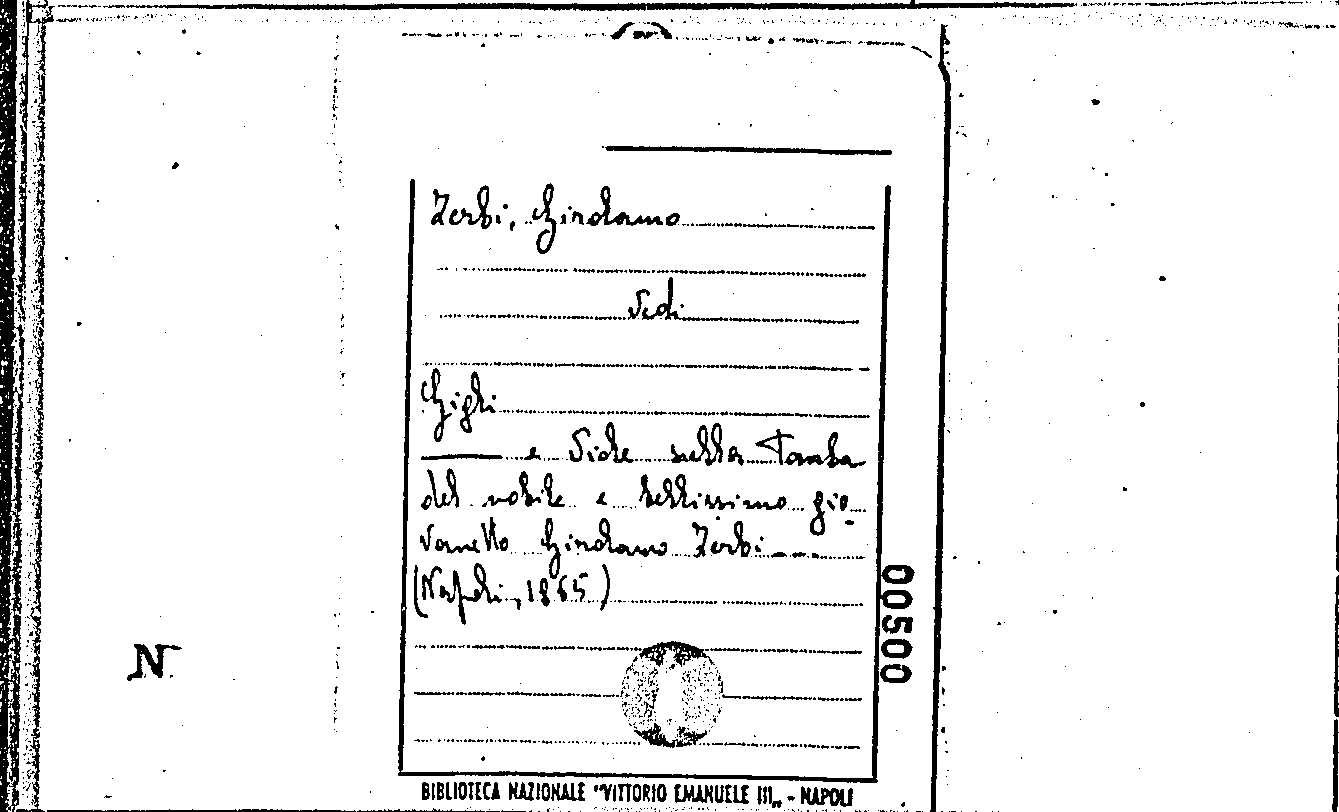 Zerbi, Girolamo
Vedi
Gigli
——— e Viole sulla Tomba
del nobile e bellissimo gio-
vanetto Girolamo Zerbi ----
(Napoli, 1865)
00500
N
BIBLIOTECA NAZIONALE "VITTORIO EMANUELE III„ - NAPOLI